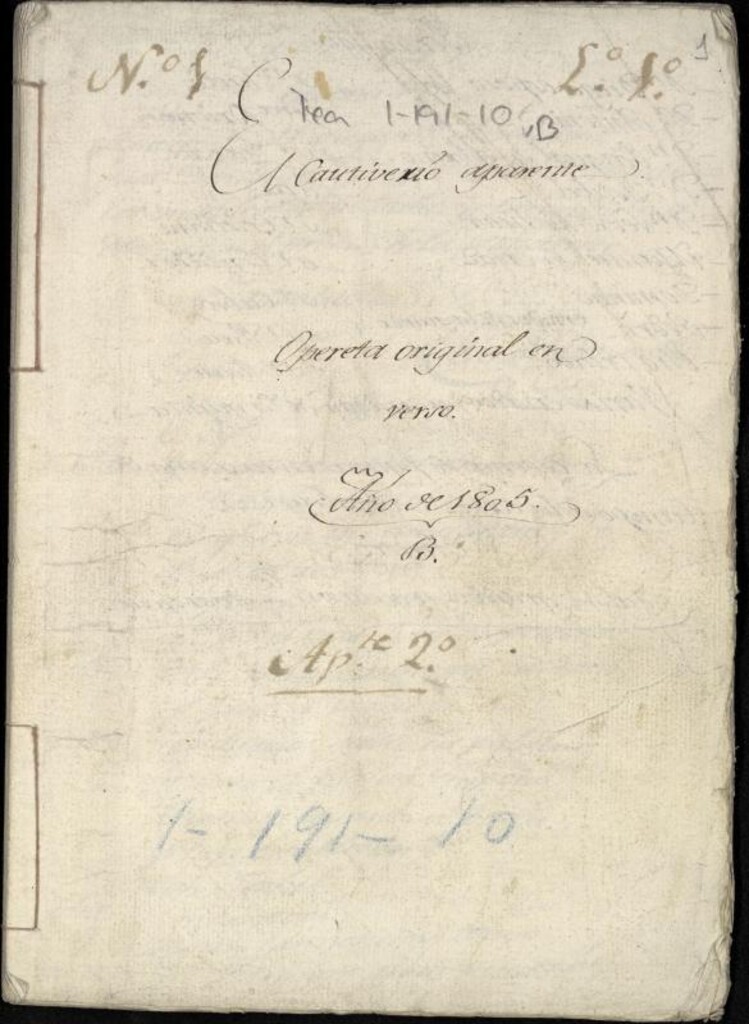 N.º 1 L.º 1.º 1
Tea 1-191-10, B
El Cautiverio aparente.
Opereta original en
verso.
Año de 1805.
B.
Ap.te 2.º
1-191-10